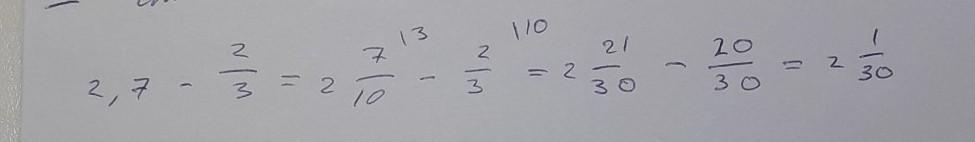 2,7 - 2/3 = 2 7/10 \3 - 2/3 \10 = 2 21/30 - 20/30 = 2 1/30